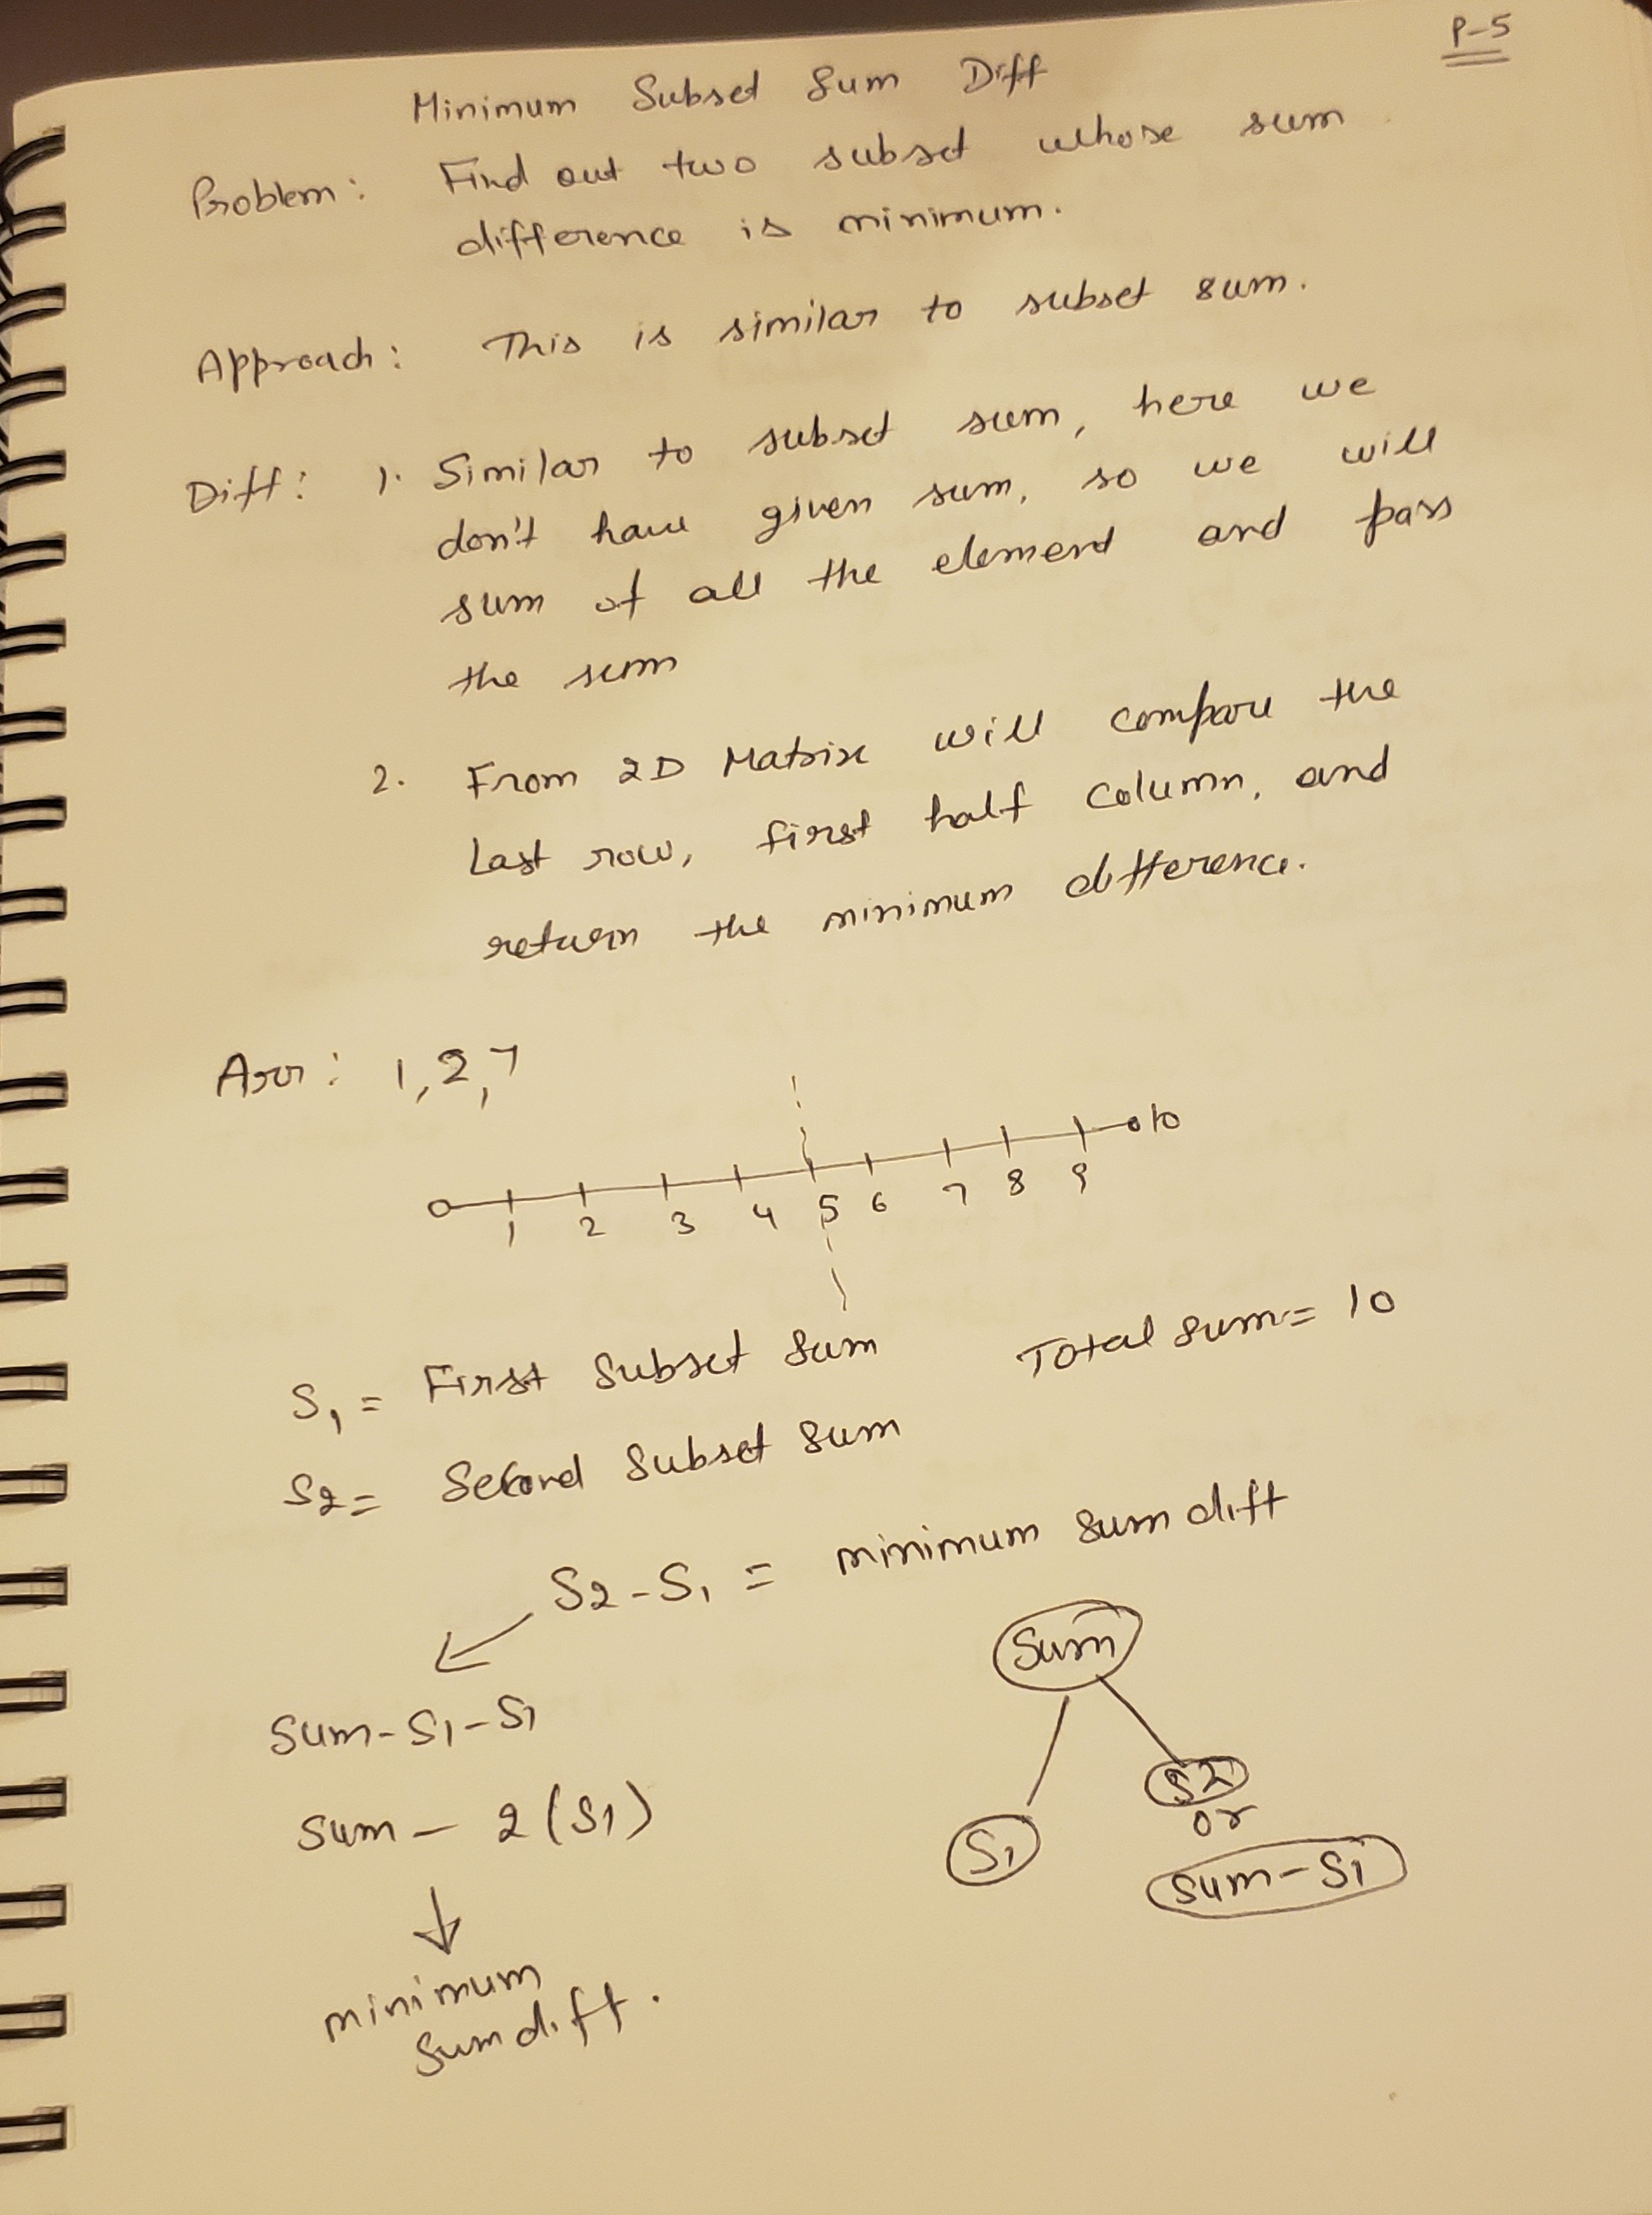 P-5
Minimum Subset Sum Diff
Problem: Find out two subset whose sum
difference is minimum.
Approach: This is similar to subset sum.
Diff: 1. Similar to subset sum, here we
don't have given sum, so we will
sum of all the element and pass
the sum
2. From 2D Matrix will compare the
Last row, first half column, and
return the minimum difference.
Arr: 1,2,7
0 10
1 2 3 4 5 6 7 8 9
S1 = First Subset Sum Total sum = 10
S2 = Second Subset Sum
S2-S1 = minimum sum diff
Sum
Sum-S1-S1
S2
or
Sum - 2(S1)
S1
Sum-S1
minimum
Sum diff.